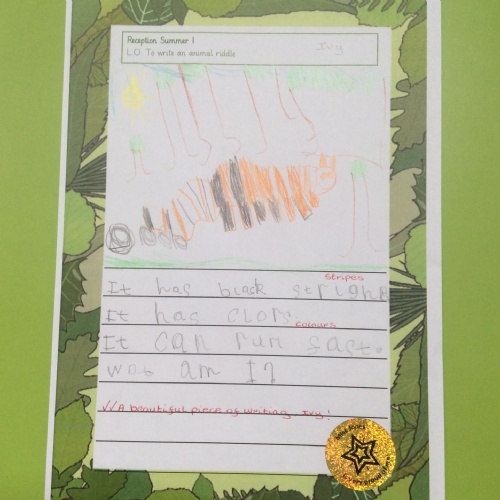 Reception Summer 1
L.O. To write an animal riddle
Ivy
stripes
It has black strighe
It has clors.
colours
It can run fast.
wot am I?
A beautiful piece of writing, Ivy!